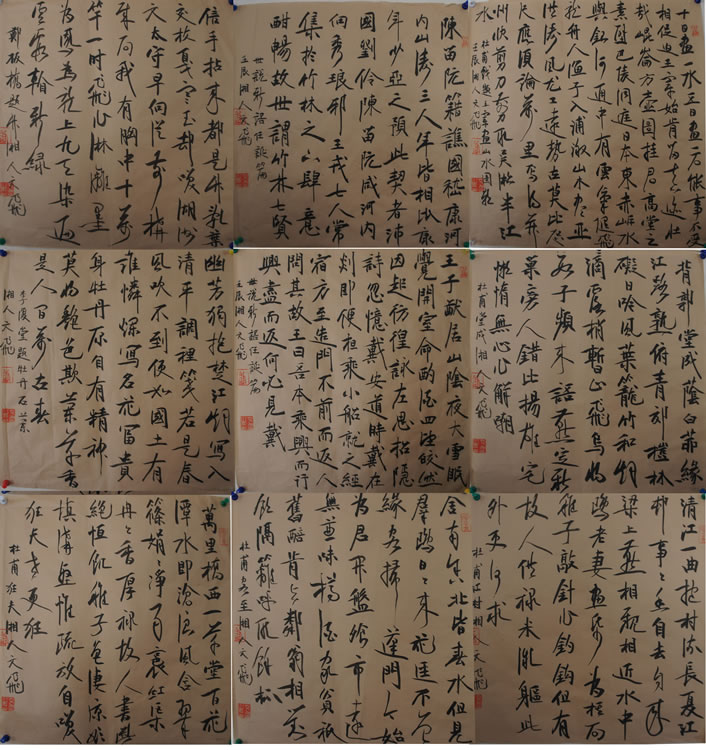 十日畫一水五日畫一石能事不受
相促迫王宰始肯留真迹壯
哉崑崙方壺圖挂君高堂之
素壁巴陵洞庭日本東赤岸水
與銀河通中有雲氣隨飛
龍舟人漁子入浦漵山木盡亞
洪濤風尤工遠勢古莫比咫
尺應須論萬里焉得并
州快剪刀剪取吳淞半江
水
杜甫戲題王宰畫山水圖歌
陳留阮籍譙國嵇康河
内山濤三人年皆相比康
年少亞之預此契者沛
國劉伶陳留阮咸河内
向秀琅邪王戎七人常
集於竹林之下肆意
酣暢故世謂竹林七賢
世說新語任誕篇
壬辰湘人文飛
信手拈来都是竹亂葉
交枝戛寒玉却笑湖州
文太守早向從奇構
成局我有胸中十萬
竿一时飛作淋漓墨
為鳳為龍上九天染遍
雲霞看新綠
鄭板橋題竹湘人文飛
背郭堂成蔭白茅緣
江路熟俯青郊榿林
礙日吟風葉籠竹和烟
滴露梢暫止飛烏將
數子頻来語燕定新
巢旁人錯比揚雄宅
懒惰無心作解嘲
杜甫堂成湘人文飛
王子猷居山陰夜大雪眠
覺開室命酌酒四望皎然
因起彷徨詠左思招隱
詩忽憶戴安道時戴在
剡即便夜乘小船就之經
宿方至造門不前而返人
問其故王曰吾本乘興而行
興盡而返何必見戴
世說新語任誕篇
壬辰湘人文飛
幽芳獨抱楚江烟寫入
清平調裡箋若是春
風吹不到便如國土有
誰憐爛寫石花富貴
身牡丹原自有精神
莫將艷色欺蘭草香
是人百萬在春
李復堂題牡丹石蘭
湘人文飛
清江一曲抱村流長夏江
村事事幽自去自来
梁上燕相親相近水中
鷗老妻畫紙為棋局
稚子敲針作釣鉤但有
故人供禄米微軀此
外更何求
杜甫江村湘人文飛
舍南舍北皆春水但見
羣鷗日日来花徑不曾
緣客掃蓬門今始
為君開盤飧市遠
無兼味樽酒家貧祇
舊醅肯與鄰翁相對
飲隔籬呼取盡餘杯
杜甫客至湘人文飛
萬里橋西一草堂百花
潭水即滄浪風含翠
篠娟娟淨雨裛紅蕖
冉冉香厚禄故人書斷
絕恒飢稚子色凄凉欲
填溝壑惟疏放自笑
狂夫老更狂
杜甫狂夫湘人文飛